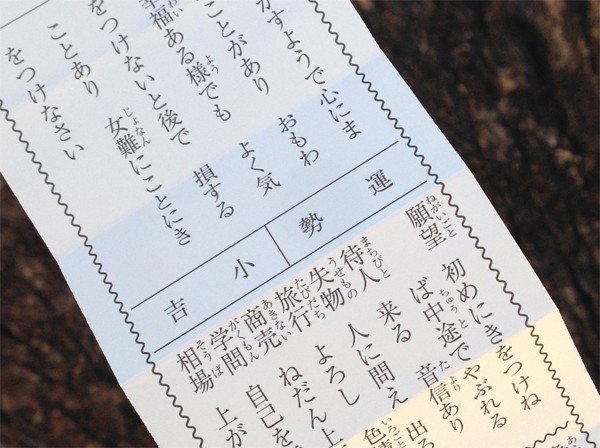 かすようで心にま
ことがあり おもわ
幸福ある様でも よく気
をつけないと後で 損する
ことあり 女難にことにき
をつけなさい
運勢
小吉
願望 初めにきをつけね
ば中途でやぶれる
待人 来る 音信あり
失物 人に問え 出
旅行 よろし 色
商売 ねだん上
学問 自己を
相場 上が